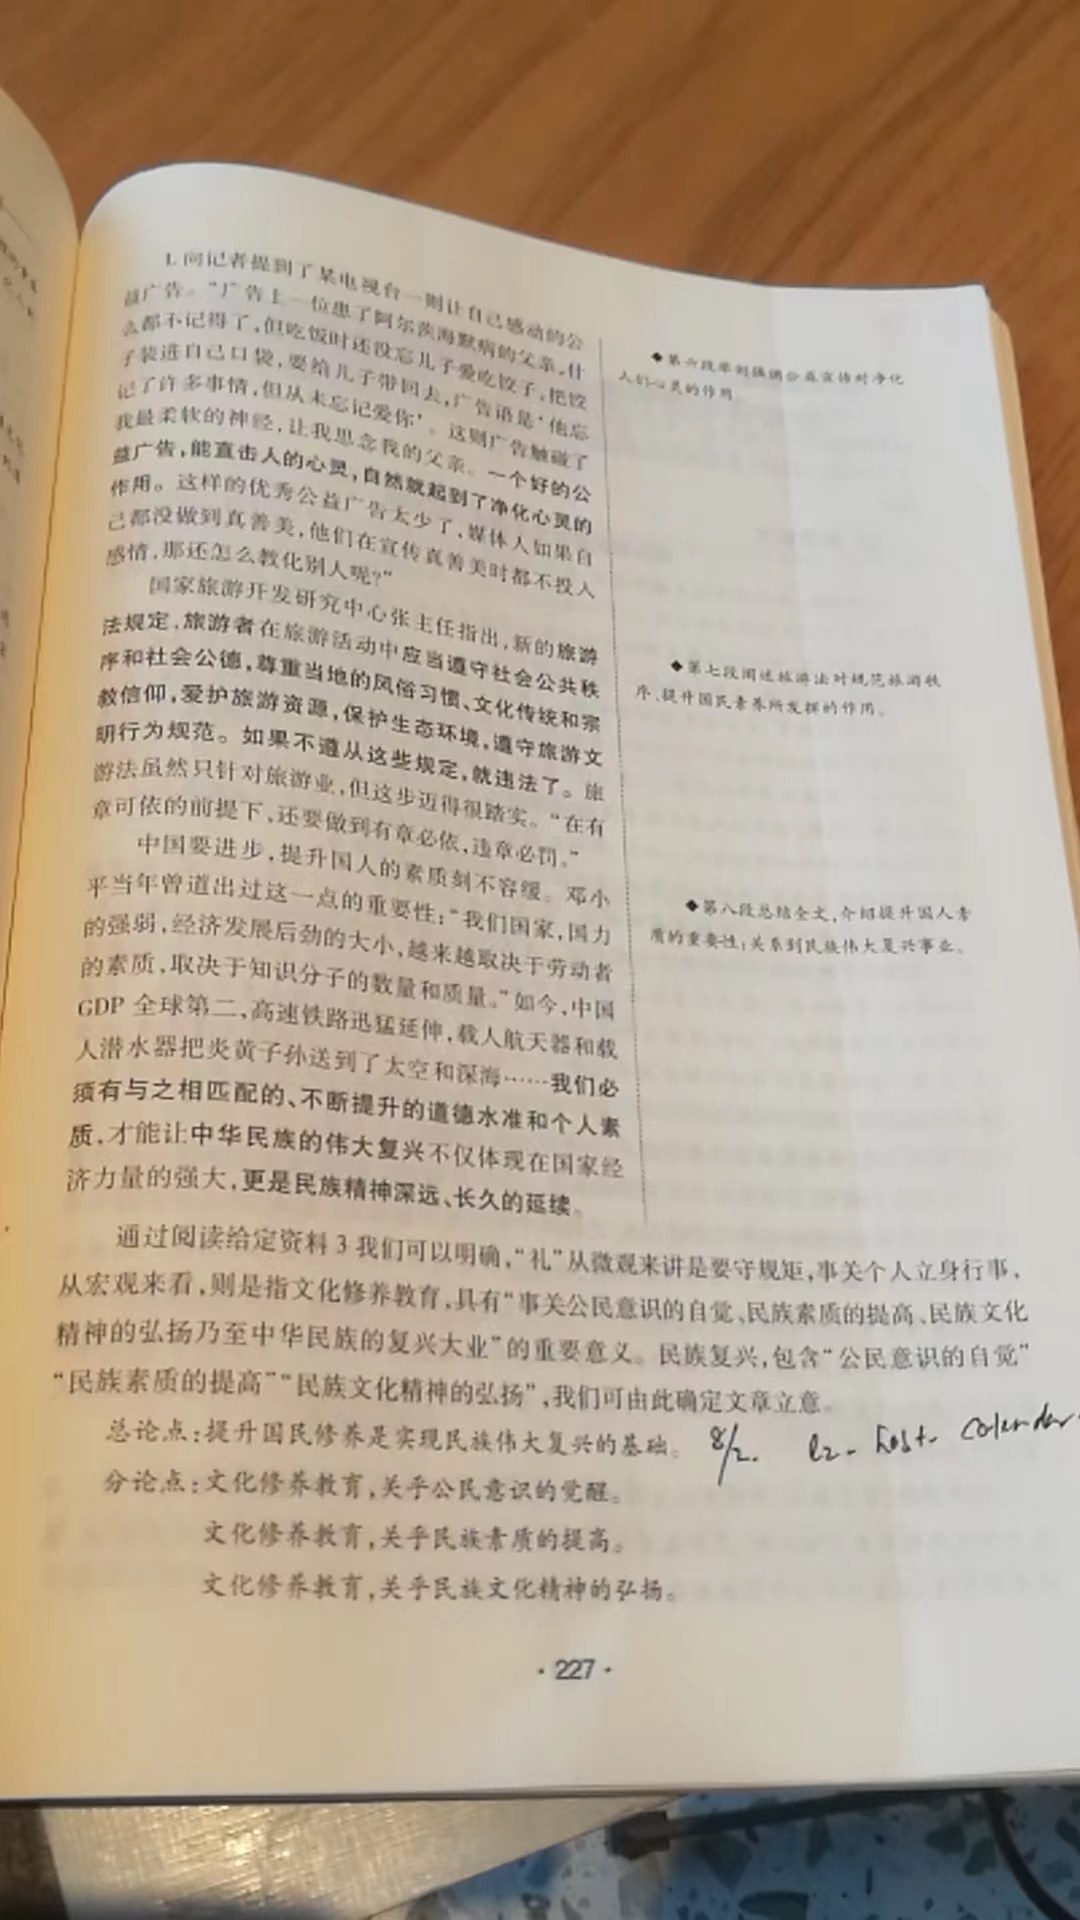 L 向记者提到了某电视台一则让自己感动的公
益广告。“广告上一位患了阿尔茨海默病的父亲,什
么都不记得了,但吃饭时还没忘儿子爱吃饺子,把饺
子装进自己口袋,要给儿子带回去,广告语是‘他忘
记了许多事情,但从未忘记爱你’。这则广告触碰了
我最柔软的神经,让我思念我的父亲。一个好的公
益广告,能直击人的心灵,自然就起到了净化心灵的
作用。这样的优秀公益广告太少了,媒体人如果自
己都没做到真善美,他们在宣传真善美时都不投入
感情,那还怎么教化别人呢?”
◆第六段举例强调公益宣传对净化
人们心灵的作用。
国家旅游开发研究中心张主任指出,新的旅游
法规定,旅游者在旅游活动中应当遵守社会公共秩
序和社会公德,尊重当地的风俗习惯、文化传统和宗
教信仰,爱护旅游资源,保护生态环境,遵守旅游文
明行为规范。如果不遵从这些规定,就违法了。旅
游法虽然只针对旅游业,但这步迈得很踏实。“在有
章可依的前提下,还要做到有章必依,违章必罚。”
◆第七段阐述旅游法对规范旅游秩
序、提升国民素养所发挥的作用。
中国要进步,提升国人的素质刻不容缓。邓小
平当年曾道出过这一点的重要性:“我们国家,国力
的强弱,经济发展后劲的大小,越来越取决于劳动者
的素质,取决于知识分子的数量和质量。”如今,中国
GDP 全球第二,高速铁路迅猛延伸,载人航天器和载
人潜水器把炎黄子孙送到了太空和深海……我们必
须有与之相匹配的、不断提升的道德水准和个人素
质,才能让中华民族的伟大复兴不仅体现在国家经
济力量的强大,更是民族精神深远、长久的延续。
◆第八段总结全文,介绍提升国人素
质的重要性:关系到民族伟大复兴事业。
通过阅读给定资料 3 我们可以明确,“礼”从微观来讲是要守规矩,事关个人立身行事,
从宏观来看,则是指文化修养教育,具有“事关公民意识的自觉、民族素质的提高、民族文化
精神的弘扬乃至中华民族的复兴大业”的重要意义。民族复兴,包含“公民意识的自觉”
“民族素质的提高”“民族文化精神的弘扬”,我们可由此确定文章立意。
总论点:提升国民修养是实现民族伟大复兴的基础。 8/2.
分论点:文化修养教育,关乎公民意识的觉醒。
文化修养教育,关乎民族素质的提高。
文化修养教育,关乎民族文化精神的弘扬。
·227·